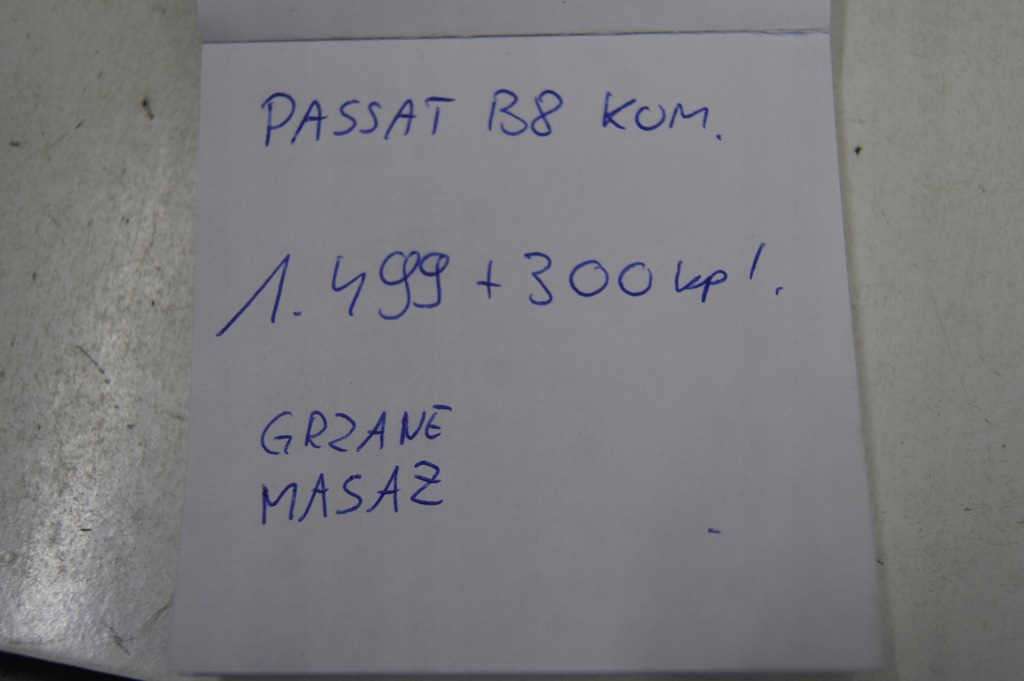 PASSAT B8 KOM.
1.499 + 300 kpl.
GRZANE
MASAZ